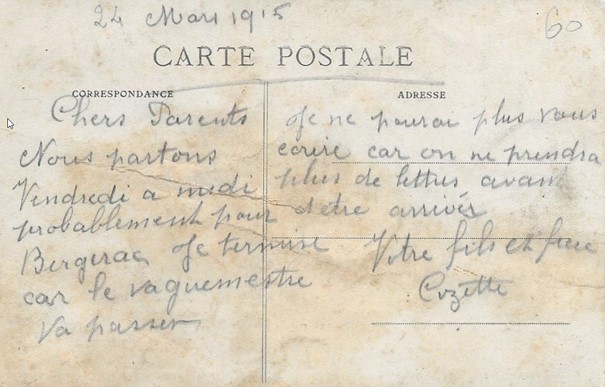 24 Mars 1915
60
CARTE POSTALE
CORRESPONDANCE
ADRESSE
Chers Parents
Nous partons
Vendredi a midi
probablement pour
Bergerac Je termine
car le vaguemestre
va passer
Je ne pourai plus vous
ecrire car on ne prendra
plus de lettres avant
d'etre arrivér
Votre fils et frere
Cozette